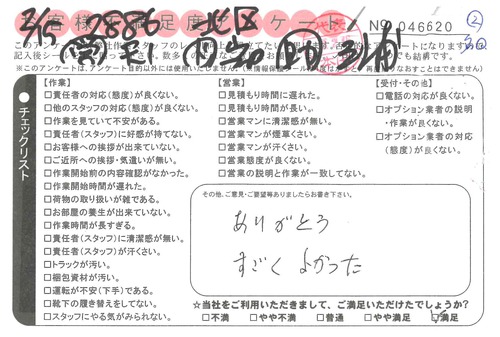 お客様満足度アンケート
No 046620
2/5 2886 北区
②
【作業】
□責任者の対応(態度)が良くない。
□他のスタッフの対応(態度)が良くない。
□作業を見ていて不安がある。
□責任者(スタッフ)に好感が持てない。
□お客様への挨拶が出来ていない。
□ご近所への挨拶・気遣いが無い。
□作業開始前の内容確認がなかった。
□作業開始時間が遅れた。
□荷物の取り扱いが雑である。
□お部屋の養生が出来ていない。
□作業時間が長すぎる。
□責任者(スタッフ)に清潔感が無い。
□責任者(スタッフ)が汗くさい。
□トラックが汚い。
□梱包資材が汚い。
□運転が不安(下手)である。
□靴下の履き替えをしてない。
□スタッフにやる気がみられない。
【営業】
□見積もり時間に遅れた。
□見積もり時間が長い。
□営業マンに清潔感が無い。
□営業マンが煙草くさい。
□営業マンが汗くさい。
□営業態度が良くない。
□営業の説明と作業が一致してない。
【受付・その他】
□電話の対応が良くない。
□オプション業者の説明
・作業が良くない。
□オプション業者の対応
(態度)が良くない。
チェックリスト
その他、ご意見・ご要望等ありましたらお書き下さい。
ありがとう
すごく よかった
☆当社をご利用いただきまして、ご満足いただけたでしょうか?
□不満 □やや不満 □普通 □やや満足 ☑満足